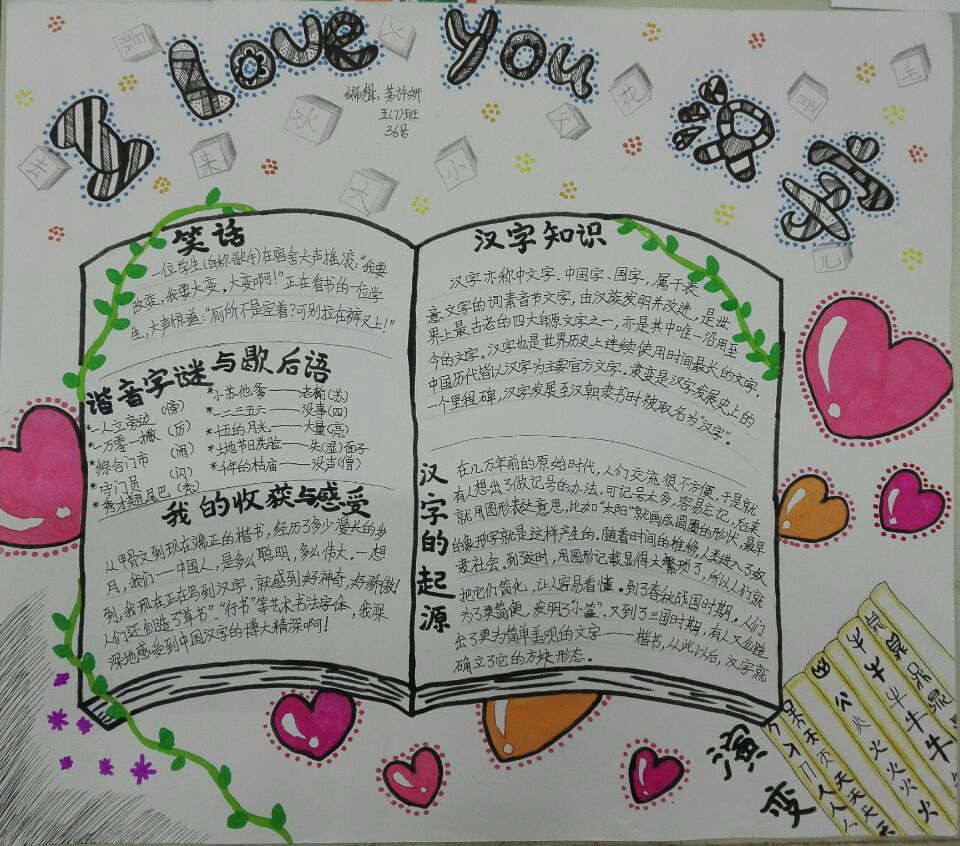 I Love You 汉字
编缉:芳许妍
五(7)班
36号
火
水
来
去
人
小
天
花
毛
儿
笑话
一位学生(自称歌手)在宿舍大声摇滚:“我要
改变,我要大变,大变啊!”正在看书的一位学
生,大声惊道:“厕所不是空着?可别拉在裤叉上!”
谐音字谜与歇后语
*一人立旁边 (倚)
*一万零一撇 (厉)
*综合门市 (闹)
*守门员 (闪)
*秀才翘尾巴 (秃)
*小苏他爹——老输(苏)
*一二三五六——没事(四)
*十五的月光——大量(亮)
*土地爷洗脸——失(湿)面子
*千年的枯庙——没声(僧)
我的收获与感受
从甲骨文到现在端正的楷书,经历了多少漫长的岁
月,我们——中国人,是多么聪明,多么伟大。一想
到,我现在正在写到汉字,就感到好神奇,好骄傲!
人们还创造了“草书”“行书”等艺术书法字体,我深
深地感受到中国汉字的博大精深啊!
汉字知识
汉字亦称中文字、中国字、国字,属于表
意文字的词素音节文字,由汉族发明并改进,是世
界上最古老的四大自源文字之一,亦是其中唯一沿用至
今的文字。汉字也是世界历史上连续使用时间最长的文字,
中国历代皆以汉字为主要官方文字。隶变是汉字发展史上的
一个里程碑,汉字发展至汉朝隶书时被取名为“汉字”。
汉字的起源
在几万年前的原始时代,人们交流很不方便,于是就
有人想出了做记号的办法,可记号太多,容易忘记,后来
就用图形表达意思,比如“太阳”就画成圆圈的形状,最早
的象形字就是这样产生的。随着时间的推移,人类进入了奴
隶社会。到这时,用图形记载显得太繁琐了,所以人们就
把它们简化,让人容易看懂。到了春秋战国时期,人们
为了更简便,发明了“小篆”。又到了三国时期,有人又创造
出了更为简单美观的文字——楷书,从此以后,汉字就
确立了它的方块形态。
演变
天 天 天
火 火 火 火 火
牛 牛 牛 牛 牛